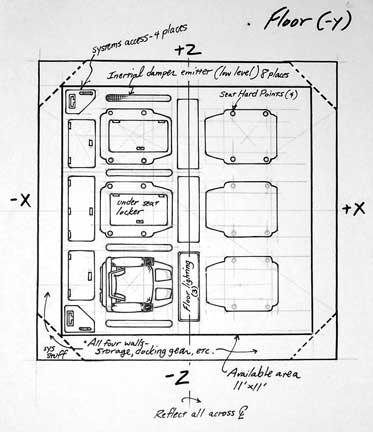 Floor (-y)
systems access - 4 places
+Z
Inertial damper emitter (low level) 8 places
Seat Hard Points (4)
-X
+X
under seat
locker
Floor lighting
(3)
sys
stuff
*All four walls-
storage, docking gear, etc.
Available area
11'x11'
-Z
Reflect all across ℄